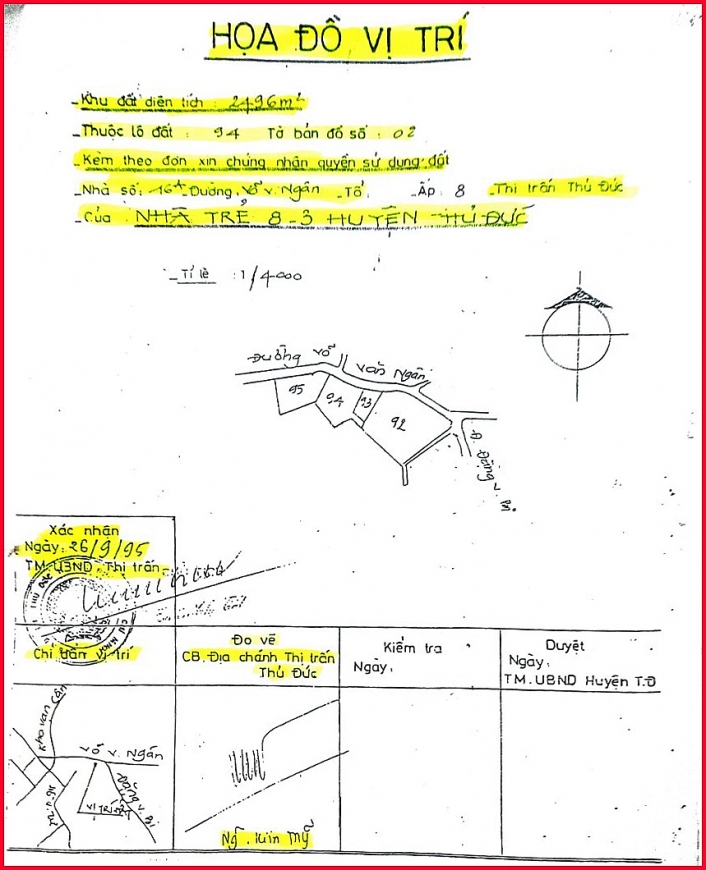 HỌA ĐỒ VỊ TRÍ
- Khu đất diện tích : 2496m²
- Thuộc lô đất : 94 Tờ bản đồ số : 02
- Kèm theo đơn xin chứng nhận quyền sử dụng đất
- Nhà số: 16A Đường Võ V. Ngân - Tổ. Ấp: 8 - Thị trấn Thủ Đức
- Của : NHÀ TRẺ 8-3 HUYỆN THỦ ĐỨC
- Tỉ lệ : 1/4000
Đường Võ Văn Ngân
95
94
93
92
Đ. Đặng V. Bi
Xác nhận
Ngày: 26/9/95
TM. UBND. Thị trấn
Chỉ dẫn vị trí
Đo vẽ
CB. Địa chánh Thị trấn
Thủ Đức
Kiểm tra
Ngày:
Duyệt
Ngày:
TM. UBND Huyện T.Đ
Kha Vạn Cân
Võ V. Ngân
Đặng V. Bi
VỊ TRÍ
Ng. Kim Mỹ